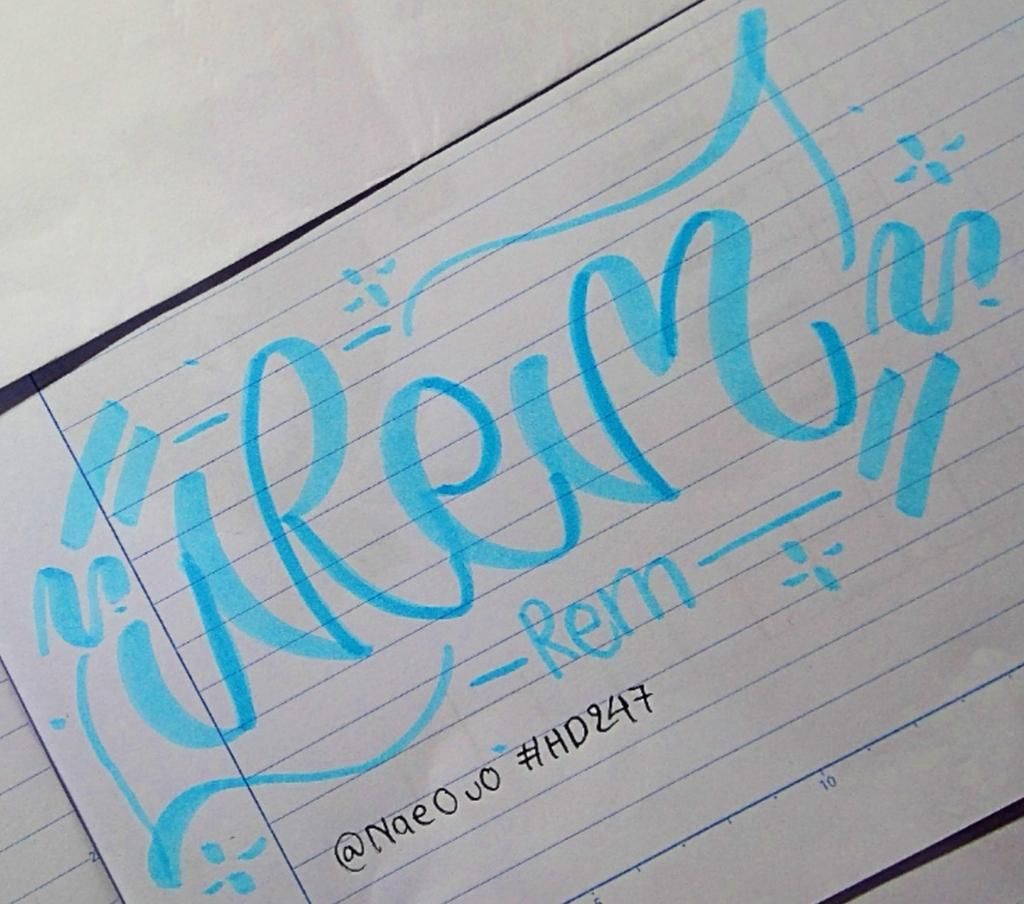 Rem
- Rem -
@NaeOJO #HD247
10
5
2